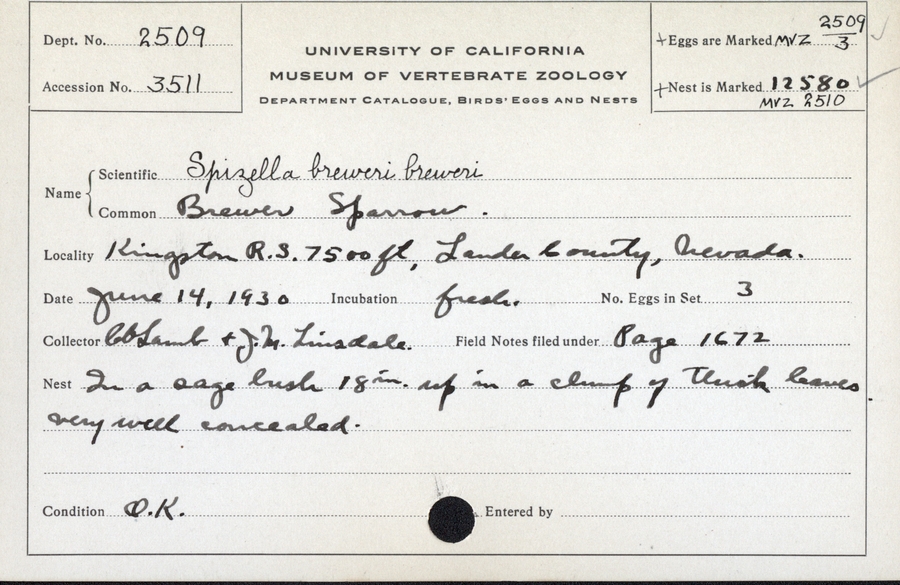 Dept. No. 2509
Accession No. 3511
UNIVERSITY OF CALIFORNIA
MUSEUM OF VERTEBRATE ZOOLOGY
DEPARTMENT CATALOGUE, BIRDS' EGGS AND NESTS
+Eggs are Marked MVZ 2509/3 ✓
+Nest is Marked 12580 ✓
MVZ 2510
Name { Scientific Spizella breweri breweri
Common Brewer Sparrow.
Locality Kingston R.S. 7500 ft, Lander County, Nevada.
Date June 14, 1930 Incubation fresh. No. Eggs in Set 3
Collector CC Lamb + J.M. Linsdale. Field Notes filed under Page 1672
Nest In a sage bush 18 in. up in a clump of thick leaves.
very well concealed.
Condition O.K. Entered by